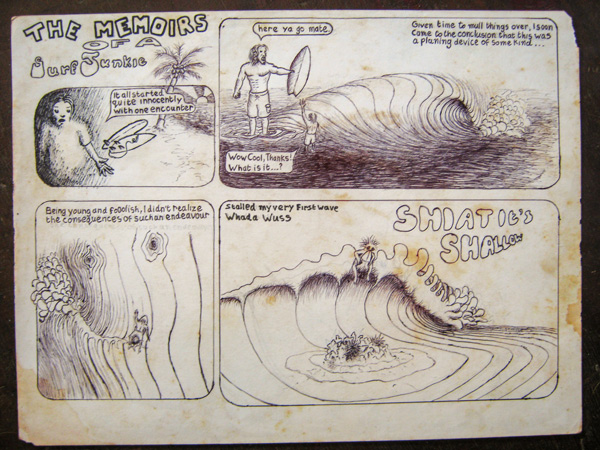 THE MEMOIRS
OF A
Surf Junkie
It all started
quite innocently
with one encounter
here ya go mate.
Wow Cool, Thanks!
What is it...?
Given time to mull things over, I soon
came to the conclusion that this was
a planing device of some kind...
Being young and fooolish, I didn't realize
the consequences of such an endeavour
Stalled my very First wave
Whada Wuss
SHIAT it's
SHALLOW